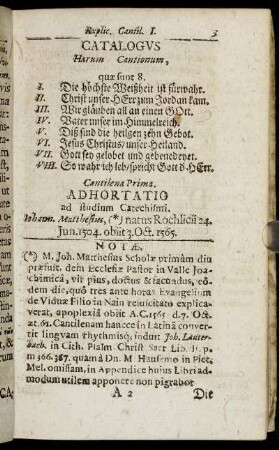 Explic. Cantil. I. 3
CATALOGVS
Harum Cantionum,
quæ sunt 8.
I. Die höchste Weißheit ist fürwahr.
II. Christ unser HErr zum Jordan kam.
III. Wir glauben all an einen GOtt.
IV. Vater unser im Himmelreich.
V. Diß sind die heilgen zehn Gebot.
VI. Jesus Christus/ unser Heiland.
VII. Gott sey gelobet und gebenedeyet.
VIII. So wahr ich leb/ spricht Gott d' HErr.
Cantilena Prima.
ADHORTATIO
ad studium Catechismi.
Johann. Matthesius, (*) natus Rochlicii 24.
Jun. 1504. obiit 3. Oct. 1565.
NOTÆ.
(*) M. Joh. Matthesius Scholæ primùm diu
præfuit, dein Ecclesiæ Pastor in Valle Joa-
chimicâ, vir pius, doctus & facundus, eô-
dem die, quô tres ante horas Evangelium
de Viduæ Filio in Nain resuscitato explica-
verat, apoplexiâ obiit A.C. 1565 d. 7. Oct.
æt. 61. Cantilenam hancce in Latinâ conver-
tit lingvam rhythmisq; induit Joh. Lauter-
bach. in Cith. Psalm. Christ Sacr Lib. II. p.
m 366. 367. quam à Dn. M Hausemo in Piet.
Mel. omissam, in Appendice hujus Libri ad-
modum utilem apponere non pigrabor
A 2 Die